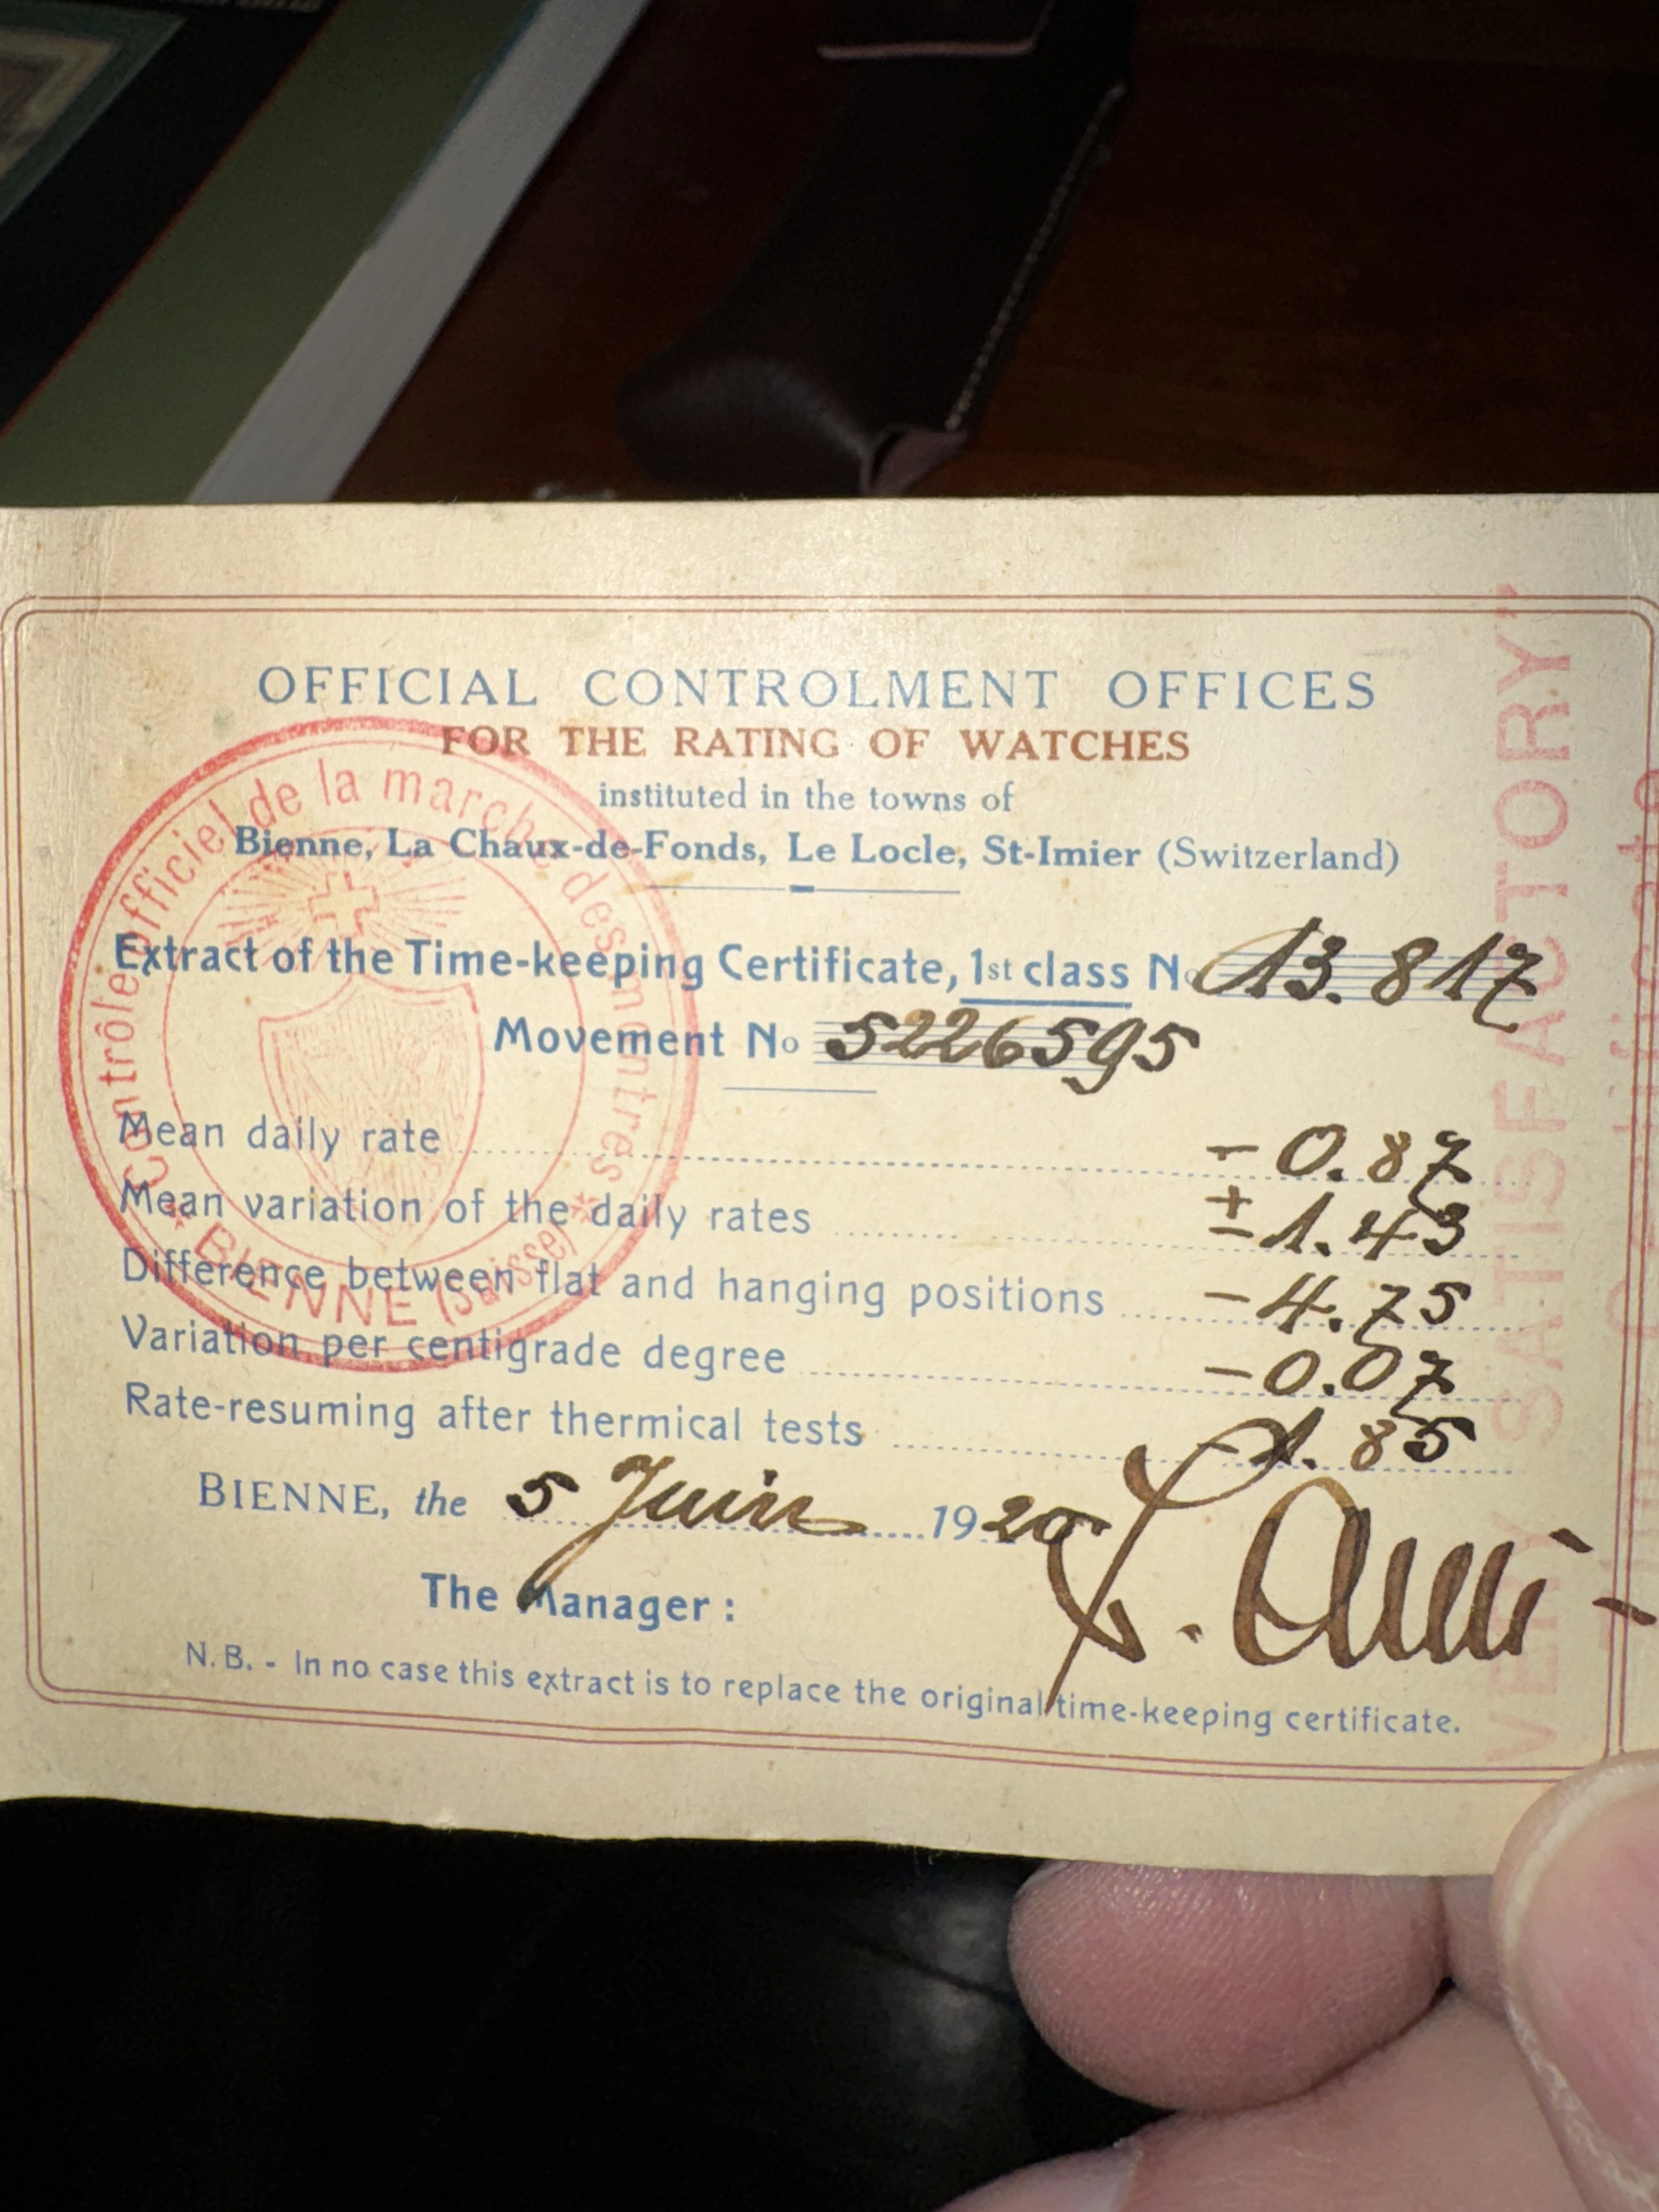 OFFICIAL CONTROLMENT OFFICES
FOR THE RATING OF WATCHES
instituted in the towns of
Bienne, La Chaux-de-Fonds, Le Locle, St-Imier (Switzerland)
Extract of the Time-keeping Certificate, 1st class No 13.817
Movement No 5226595
Mean daily rate - 0.87
Mean variation of the daily rates ± 1.43
Difference between flat and hanging positions - 4.75
Variation per centigrade degree - 0.07
Rate-resuming after thermical tests - 1.85
BIENNE, the 5 Juin 1920
The Manager:
N.B. - In no case this extract is to replace the original time-keeping certificate.
Contrôle officiel de la marche des montres
* BIENNE (Suisse) *
VERY SATISFACTORY"